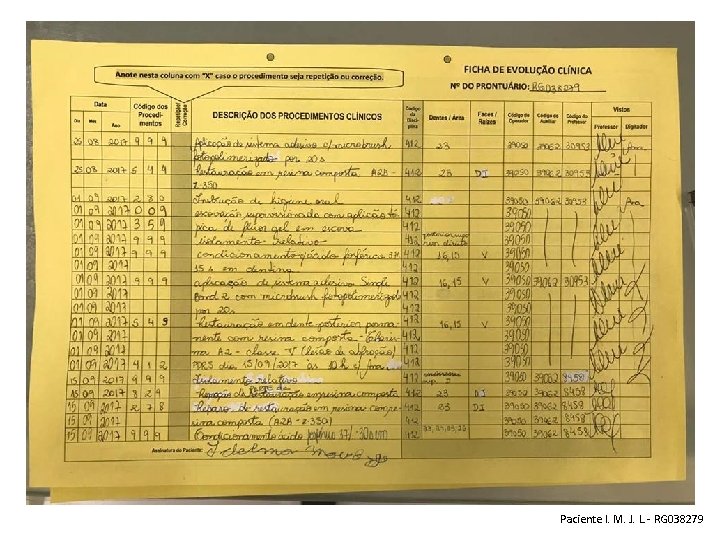 Anote nesta coluna com "X" caso o procedimento seja repetição ou correção.
FICHA DE EVOLUÇÃO CLÍNICA
Nº DO PRONTUÁRIO: RG038279
Data Código dos Procedimentos Repetição/Correção DESCRIÇÃO DOS PROCEDIMENTOS CLÍNICOS Código da Disciplina Dentes / Área Faces / Raízes Código do Operador Código do Auxiliar Código do Professor Vistos
Dia Mês Ano Professor Digitador
25 08 2017 9 9 9 Aplicação de sistema adesivo c/ microbrush 412 23 39050 39062 30953
fotopolimerizado por 20s
25 08 2017 5 4 4 Restauração em resina composta A2B - 412 23 DI 39050 39062 30953
Z350
01 09 2017 2 8 0 Instrução de higiene oral 412 39050 39062 30953
01 09 2017 0 0 9 escovação supervisionada com aplicação tó- 412 39050
01 09 2017 3 5 9 pica de flúor gel em escova 412 39050
01 09 2017 9 9 9 Isolamento relativo 412 39050
01 09 2017 9 9 9 condicionamento ácido fosfórico 37% 412 16,15 V 39050
01 09 2017 15s em dentina 412 39050
01 09 2017 9 9 9 aplicação de sistema adesivo Single 412 16,15 V 39050 39062 30953
01 09 2017 Bond 2 com microbrush fotopolimerizado 412 39050
01 09 2017 por 20s 412 39050
01 09 2017 5 4 5 Restauração em dente posterior perma- 412 16,15 V 39050
01 09 2017 nente com resina composta 412 39050
01 09 2017 ma A2 - classe V (lesão de abfração) 412 39050
01 09 2017 4 1 2 dia 15/09/2017 às 412 39050
15 09 2017 9 9 9 Isolamento relativo 412 39050 39062 8458
15 09 2017 3 2 9 Remoção de restauração em resina composta 412 23 DI 39050 39062 8458
15 09 2017 2 7 8 de restauração em resina compo- 412 23 DI 39050 39062 8458
15 09 2017 composta (A2B - Z350) 412 39050 39062 8458
15 09 2017 9 9 9 Condicionamento ácido fosfórico 37% 30s 412 39050 39062 8458
Assinatura do Paciente:
Paciente I. M. J. L - RG038279